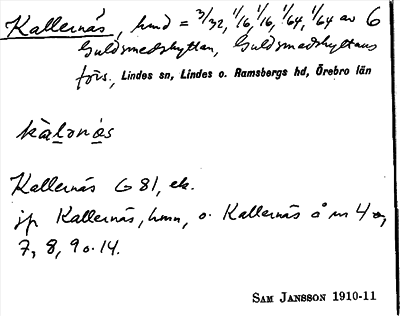 Kallernäs, hmd = 3/32, 1/16, 1/16, 1/64, 1/64 av 6
Guldsmedshyttan, Guldsmedshyttans
förs, Lindes sn, Lindes o. Ramsbergs hd, Örebro län
kàlənäs
Kallernäs G 81, ek.
jfr Kallernäs, hmn, o. Kallernäs å nr 4 o,
7, 8, 9 o. 14.
SAM JANSSON 1910-11